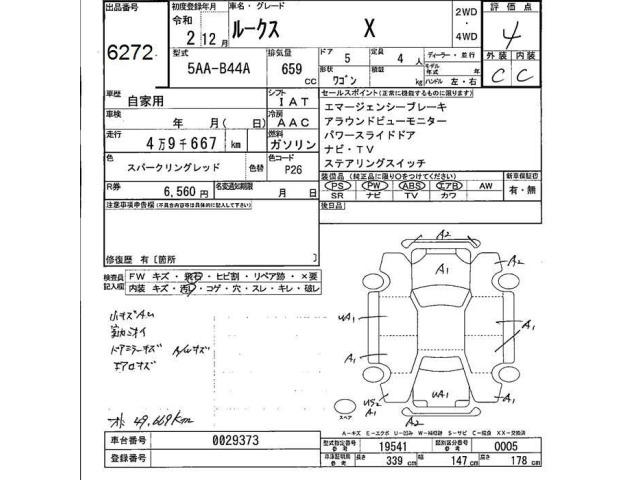 出品番号 初度登録年月 車名・グレード 2WD・4WD 評価点
6272 令和 2 12月 ルークス X 4
型式 排気量 ドア 定員 ディーラー・並行 外装 内装
5AA-B44A 659 CC 5 4 人 モデル年式 年 C C
形状 ワゴン 積載 kg ハンドル 左・右
車歴 自家用 シフト IAT セールスポイント(正常に機能するものに限ります)
車検 年 月( 日) 冷房 AAC エマージェンシーブレーキ
アラウンドビューモニター
走行 4万9千667 km 燃料 ガソリン パワースライドドア
ナビ・TV
色 スパークリングレッド 色替 色コード P26 ステアリングスイッチ
装備品(純正品に限り○をつけてください) 新車保証印
R券 6,560円 名変通知期限 月 日 PS PW ABS エアB AW 有・無
SR ナビ TV カワ
注意事項申告欄(不具合内容等は具体的に記入して下さい) 後日品
修復歴 有〔箇所 〕
検査員記入欄 FW キズ・飛石・ヒビ割・リペア跡・×要
内装 キズ・汚れ・コゲ・穴・スレ・キレ・破レ
A2
A1
A2
A1
小キズAU
UA1
A1
ドアミラーキズ A/Wキズ
A1
エアロキズ
UA1
US2
A1
A2
A1
スペア
オド 49,669km
A-キズ E-エクボ U-凹み W-補修跡 S-サビ C-腐食 XX-交換済
車台番号 0029373 型式指定番号 参考 19541 類別区分番号 参考 0005
登録番号 車検証明書 参考 長さ 339 cm 幅 147 cm 高さ 178 cm